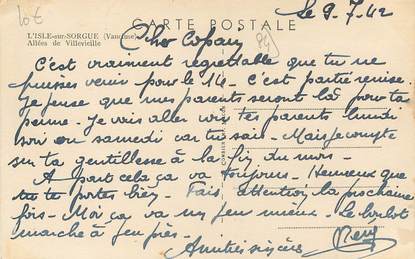 lot
CARTE POSTALE
le 9-7-42
L'ISLE-sur-SORGUE (Vaucluse)
Allées de Villevieille
Cher Copain
C'est vraiment regrettable que tu ne
puisses venir pour le 14 - c'est partie remise.
Je pense que mes parents seront là pour ta
venue - Je vais aller voir tes parents lundi
soir ou samedi car tu sais - Mais je compte
sur ta gentillesse à la fin du mois -
A part cela ça va toujours - Heureux que
tu te portes bien. Fais attention la prochaine
fois - Moi ça va un peu mieux - Le boulot
marche à peu près -
Amitiés sincères